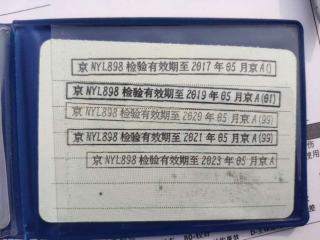 京 NYL898 检验有效期至 2017 年 05 月京 A()
京 NYL898 检验有效期至 2019 年 05 月京 A(01)
京 NYL898 检验有效期至 2020 年 05 月京 A(99)
京 NYL898 检验有效期至 2021 年 05 月京 A(99)
京 NYL898 检验有效期至 2023 年 05 月京 A